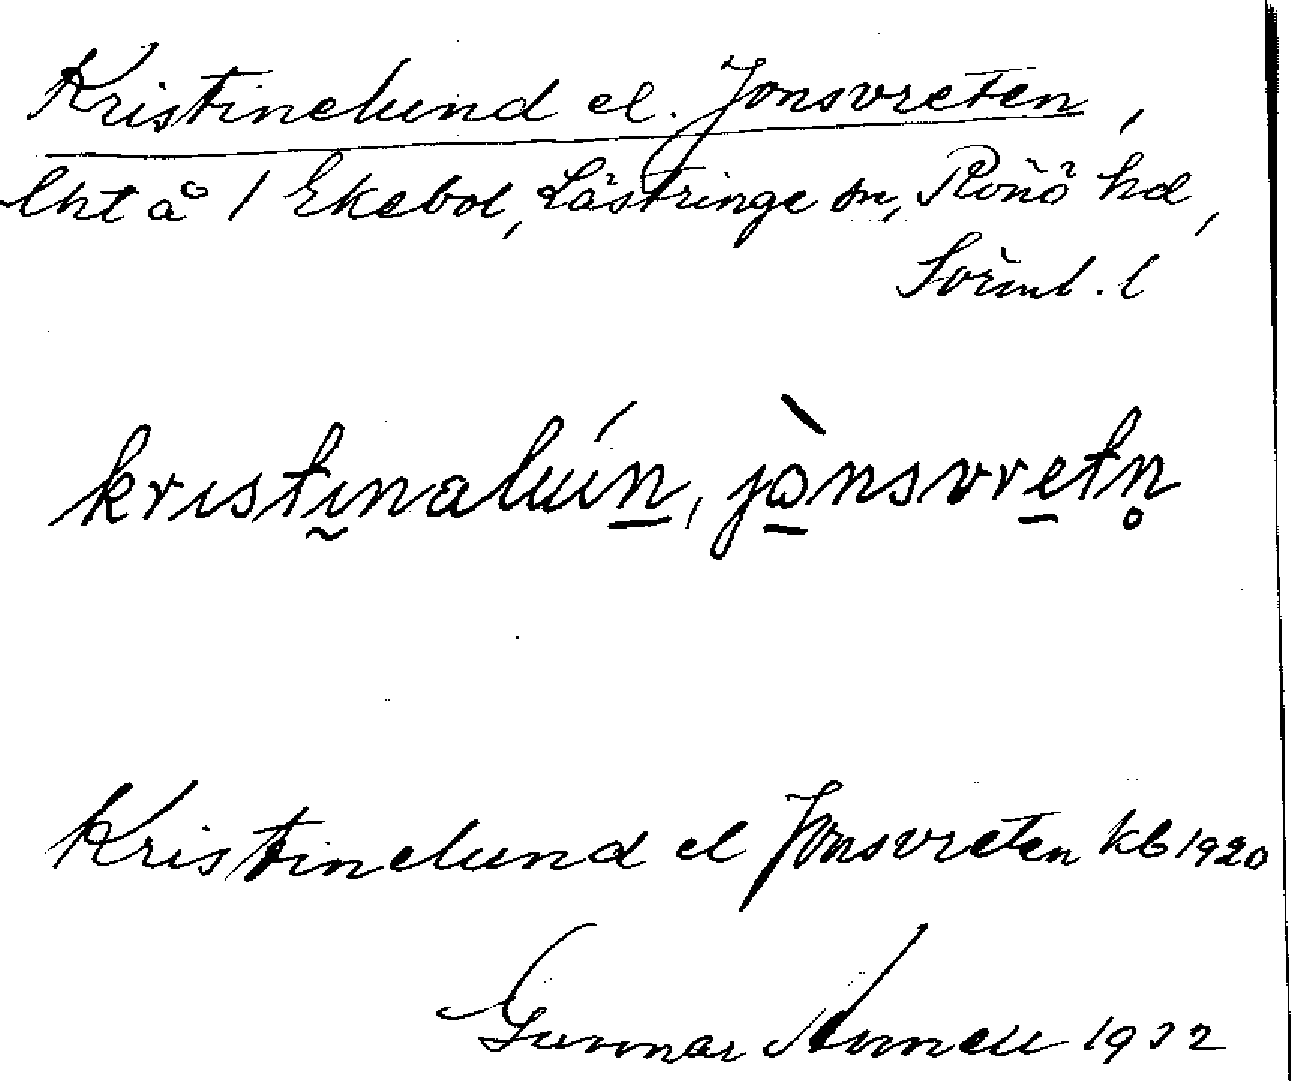 Kristinelund el. Jonsvreten,
lht å 1 Ekebol, Lästringe sn, Rönö hd,
Sörml. l
kristinalún, jò̱nsvre̱tn̥
Kristinelund el Jonsvreten kb 1920
Gunnar 1932